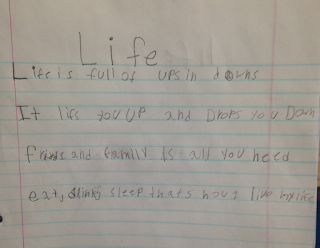 Life
Life is full of ups in downs
It lifs you up and Drops you Down
frinds and family is all you need
eat, Drink, sleep thats how I live my life